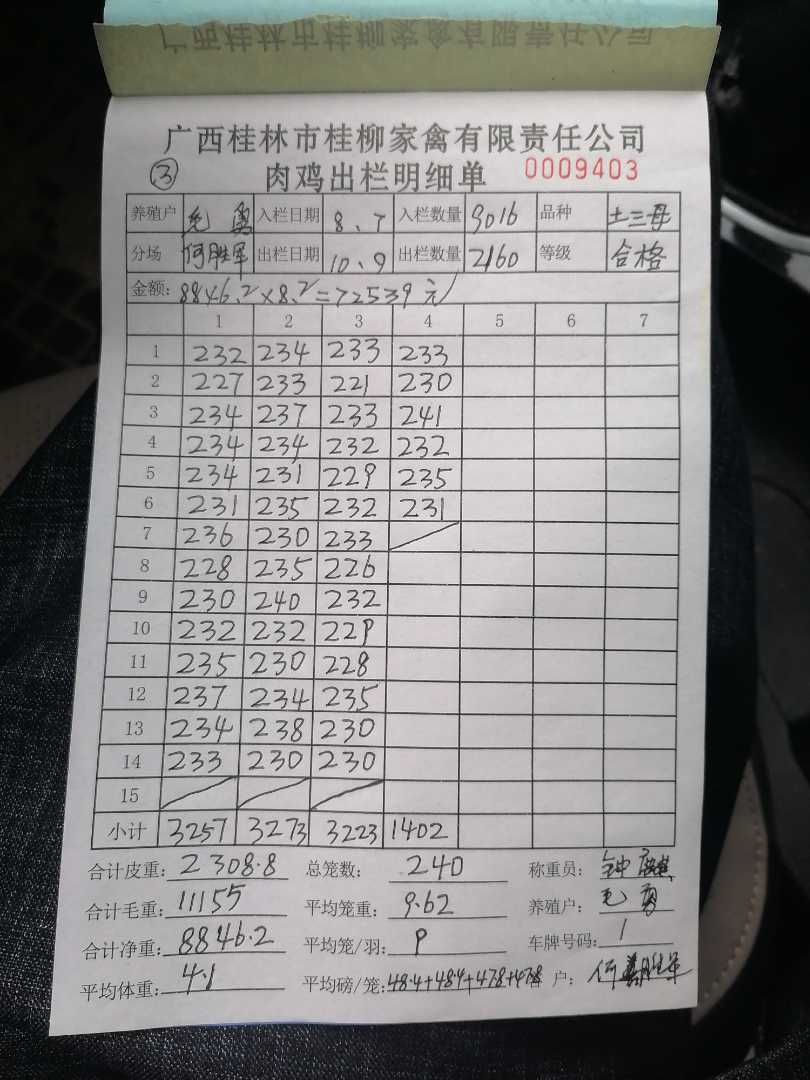 广西桂林市桂柳家禽有限责任公司
广西桂林市桂柳家禽有限责任公司
③ 肉鸡出栏明细单 0009403
养殖户 入栏日期 8、7 入栏数量 9016 品种 土三母
分场 何胜军 出栏日期 10、9 出栏数量 2160 等级 合格
金额: 8846.2×8.2=72539元
1 2 3 4 5 6 7
1 232 234 233 233
2 227 233 221 230
3 234 237 233 241
4 234 234 232 232
5 234 231 229 235
6 231 235 232 231
7 236 230 233
8 228 235 226
9 230 240 232
10 232 232 229
11 235 230 228
12 237 234 235
13 234 238 230
14 233 230 230
15
小计 3257 3273 3223 1402
合计皮重: 2308.8 总笼数: 240 称重员: 钟
合计毛重: 11155 平均笼重: 9.62 养殖户:
合计净重: 8846.2 平均笼/羽: 9 车牌号码: 1
平均体重: 4.1 平均磅/笼: 48.4+48.4+47.8+47.8 户: 何胜军